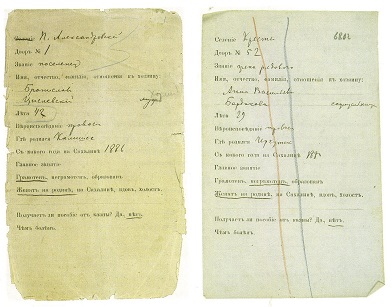 П. Александровскій
Дворъ № 1
Званіе поселенецъ
Имя, отчество, фамилія, отношеніе къ хозяину:
Брониславъ
Лѣта 42
Вѣроисповѣданіе
Гдѣ родился
Съ какого года на Сахалинѣ 1886
Главное занятіе
Грамотенъ, неграмотенъ, образованъ
Женатъ на родинѣ, на Сахалинѣ, вдовъ, холостъ.
Получаетъ ли пособіе отъ казны? Да, нѣтъ.
Чѣмъ боленъ.
Селеніе
Дворъ № 52
Званіе жена рядового
Имя, отчество, фамилія, отношеніе къ хозяину:
Анна
Лѣта 29
Вѣроисповѣданіе
Гдѣ родился
Съ какого года на Сахалинѣ 188
Главное занятіе
Грамотенъ, неграмотенъ, образованъ
Женатъ на родинѣ, на Сахалинѣ, вдовъ, холостъ.
Получаетъ ли пособіе отъ казны? Да, нѣтъ.
Чѣмъ боленъ.